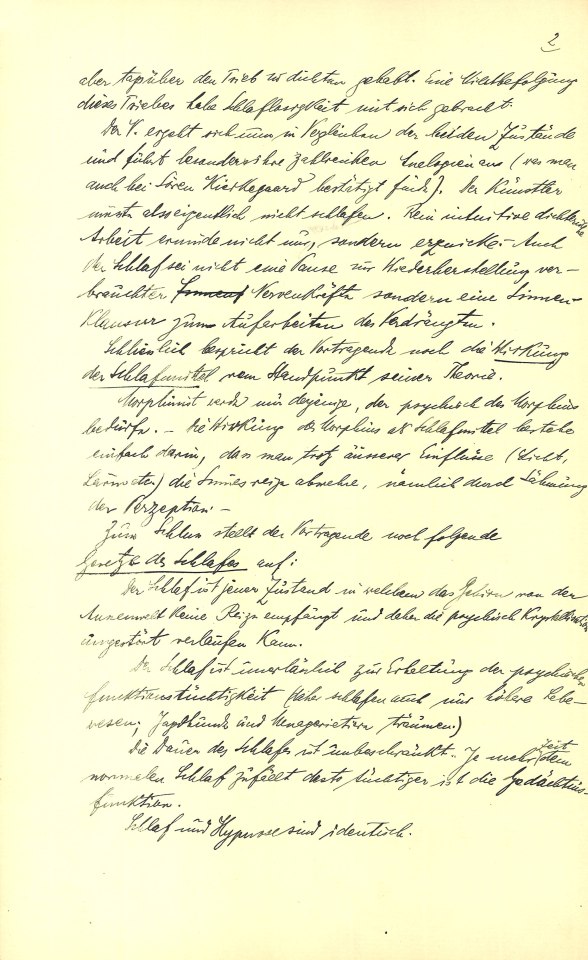 2
aber tagsüber den Trieb zu dichten gehabt. Eine Nichtbefolgung
dieses Triebes habe Schlaflosigkeit mit sich gebracht.
Der V. ergeht sich nun in Vergleichen der beiden Zustände
und führt besonders ihre zahlreichen Analogien aus (was man
auch bei Sören Kierkegaard bestätigt findet). Der Künstler
müsste also eigentlich nicht schlafen. Rein intuitive dichterische
Arbeit ermüde nicht nur, sondern erquicke. – Auch
der Schlaf sei nicht eine Pause zur Wiederherstellung ver-
brauchter Nervenkräfte sondern eine Sinnen-
Klausur zum Aufarbeiten des Verdrängten.
Schliesslich bespricht der Vortragende noch die Wirkung
der Schlafmittel vom Standpunkt seiner Theorie.
Morphinist werde nur derjenige, der psychisch des Morphiums
bedürfe. – Die Wirkung des Morphiums als Schlafmittel bestehe
einfach darin, dass man trotz äusserer Einflüsse (Licht,
Lärm etc) die Sinnesreize abwehre, nämlich durch Lähmung
der Perzeption –
Zum Schluss stellt der Vortragende noch folgende
Gesetze des Schlafes auf:
Der Schlaf ist jener Zustand in welchem das Gehirn von der
Aussenwelt keine Reize empfängt und daher die psychische
ungestört verlaufen kann.
Der Schlaf ist unerlässlich zur Erhaltung der psychischen
Funktionstüchtigkeit (daher schlafen auch nur höhere Lebe-
wesen; Jagdhunde und Menagerietiere träumen.)
Die Dauer des Schlafes ist unbeschränkt. Je mehr Zeit dem
normalen Schlaf zufällt desto tüchtiger ist die Gedächtnis-
funktion.
Schlaf und Hypnose sind identisch.